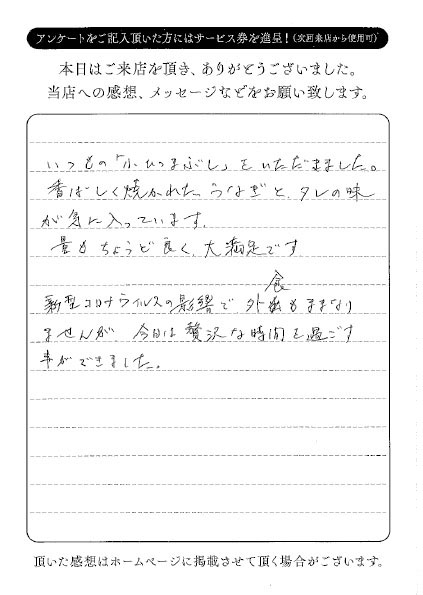 アンケートをご記入頂いた方にはサービス券を進呈！（次回来店から使用可）
本日はご来店を頂き、ありがとうございました。
当店への感想、メッセージなどをお願い致します。
いつもの「小ひつまぶし」をいただきました。
香ばしく焼かれた うなぎと、タレの味
が気に入っています。
量もちょうど良く、大満足です
新型コロナウイルスの影響で 外食もままなり
ませんが、今日は贅沢な時間を過ごす
事ができました。
頂いた感想はホームページに掲載させて頂く場合がございます。